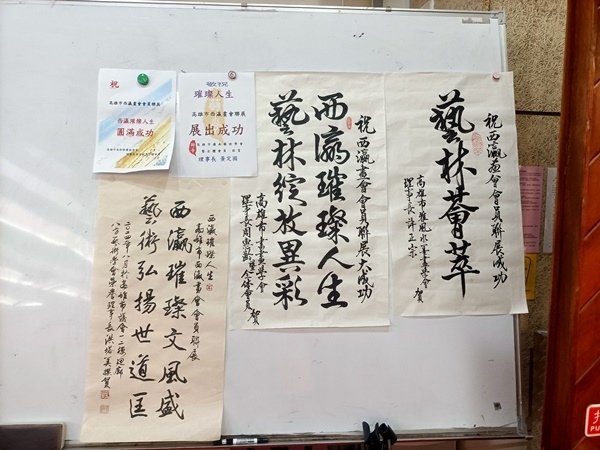 祝
高雄市西瀛畫會會員聯展
西瀛璀燦人生
圓滿成功
敬祝
璀璨人生
高雄市西瀛畫會聯展
展出成功
理事長
祝西瀛畫會會員聯展成功
藝林薈萃
高雄市雅風水墨書畫學會
理事長許正宗 賀
祝西瀛畫會會員聯展大成功
西瀛璀璨人生
藝林綻放異彩
高雄市書畫學會
全体會員 賀
西瀛璀璨人生
高雄市西瀛畫會會員聯展
西瀛璀璨文風盛
藝術弘揚世道匡